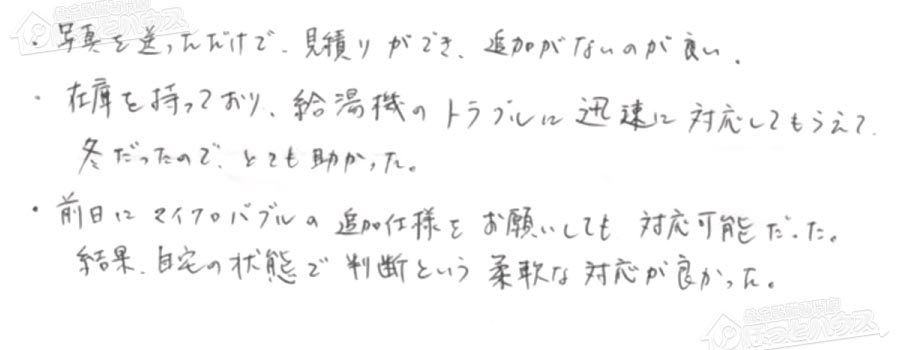 ・写真を送っただけで、見積りができ、追加がないのが良い。
・在庫を持っており、給湯機のトラブルに迅速に対応してもらえて、
冬だったので、とても助かった。
・前日にマイクロバブルの追加仕様をお願いしても対応可能だった。
結果、自宅の状態で判断という柔軟な対応が良かった。
ほっとハウス